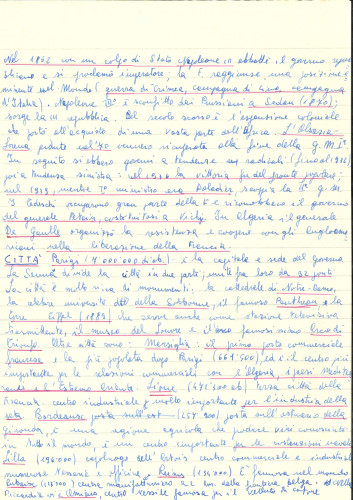 Nel 1852 con un colpo di Stato Napoleone III abbatté il governo repub
blicano e si proclamò imperatore; la F. raggiunse una posizione e
minente nel Mondo (guerra di Crimea, campagna di Cina campagna
d'Italia). Napoleone III° è sconfitto dai Prussiani a Sedan (1870);
sorge la III repubblica. Del secolo scorso è l'espansione coloniale
che portò all'acquisto di una vasta parte dell'Africa. L'Alsazia-
Lorena perduta nel '70 venne riacquistata alla fine della g.m.I°
In seguito si ebbero governi a tendenze radicali (fino al 1932)
poi a tendenza sinistra: nel 1936 la vittoria fu del fronte popolare;
nel 1939, mentre 1° ministro era Daladier, scoppia la II° g.M.
I tedeschi occuparono gran parte della F. e riconobbero il governo
del generale Petain, costituitosi a Vichy. In Algeria il generale
De Gaulle organizzò la resistenza e cooperò con gli angloame
ricani nella liberazione della Francia.
CITTA' Parigi (7.000.000 di ab.) è la capitale e sede del governo
La Senna divide la città in due parti, unite fra loro da 32 ponti
La città è molto ricca di monumenti: la cattedrale di Notre-Dame,
la celebre università della Sorbonne, il famoso Pantheon e la
torre Eiffel (1889) che serve anche come stazione televisiva
trasmittente, il museo del Louvre e il famosissimo Arco di
Trionfo. Altre città sono: Marsiglia: il primo porto commerciale
francese e la più popolata dopo Parigi (661.500), ed è il centro più
importante per le relazioni commerciali con l'Algeria i paesi Mediter
ranei e l'Estremo Oriente. Lione (471.500 ab) terza città della
Francia centro industriale molto importante per l'industria della
seta Bordeaux posta sull' (257.900) posta sull'estuario della
Gironda, è una regione agricola che produce vini conosciuti
in tutto il mondo, è un centro importante per le costruzioni navali
Lilla (196000) capoluogo dell' centro commerciale e industriale
numerose officine. Reims (134.000) È famosa nel mondo
centro manifatturiero a 2 km. dalla frontiera belga.
Piccardia centro tessile famoso per il velluto di cotone